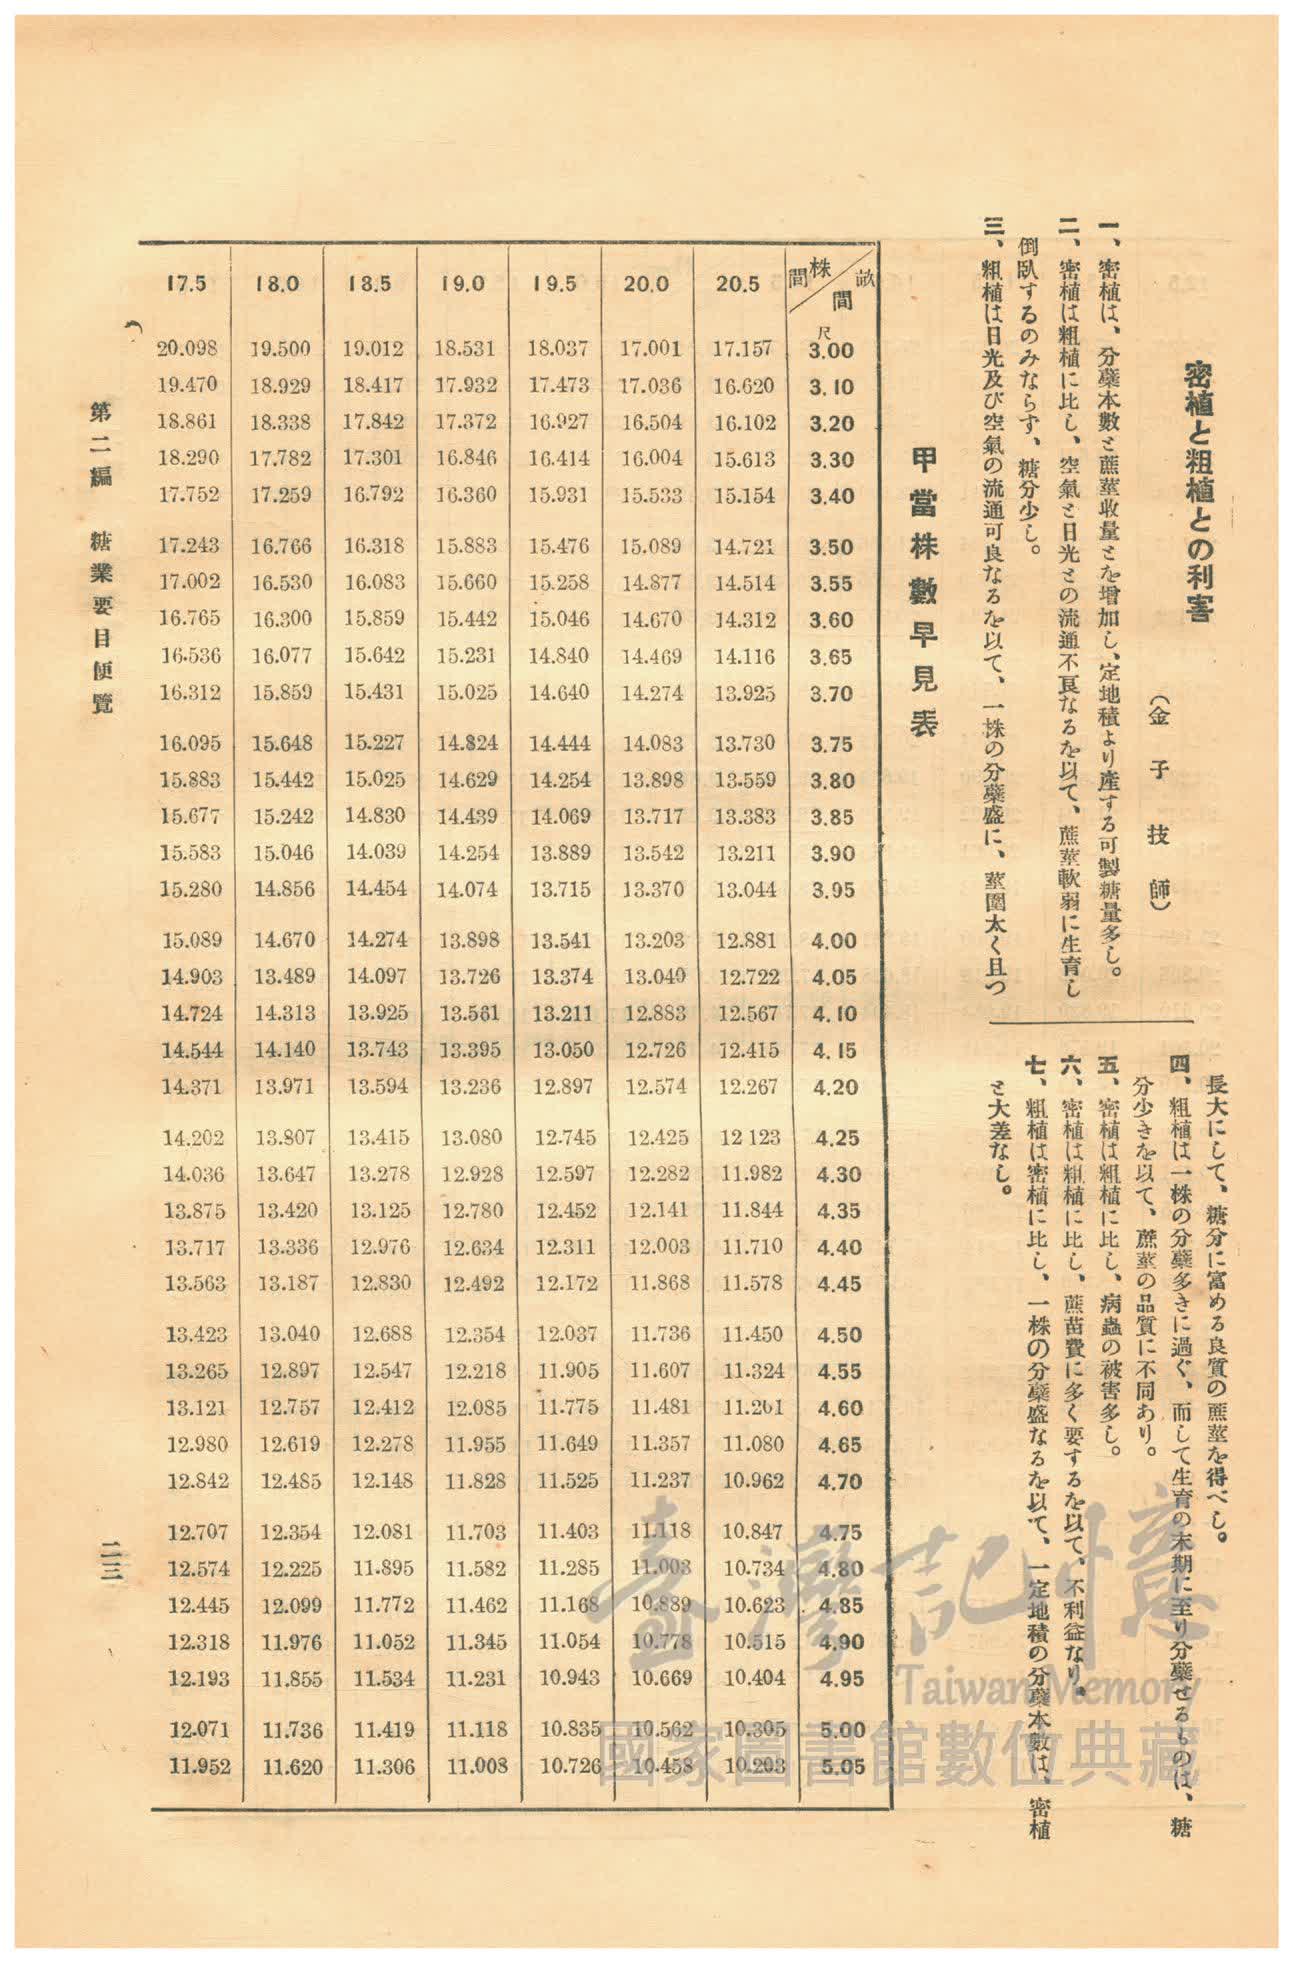 密植と粗植との利害
(金子技師)
一、密植は、分蘖本數と蔗莖收量とを增加し、定地積より產する可製糖量多し。
二、密植は粗植に比し、空氣と日光との流通不良なるを以て、蔗莖軟弱に生育し
倒臥するのみならず、糖分少し。
三、粗植は日光及び空氣の流通可良なるを以て、一株の分蘖盛に、莖圍太く且つ
長大にして、糖分に富める良質の蔗莖を得べし。
四、粗植は一株の分蘖多きに過ぐ、而して生育の末期に至り分蘖せるものは、糖
分少きを以て、蔗莖の品質に不同あり。
五、密植は粗植に比し、病蟲の被害多し。
六、密植は粗植に比し、蔗苗費に多く要するを以て、不利益なり。
七、粗植は密植に比し、一株の分蘖盛なるを以て、一定地積の分蘖本數は、密植
と大差なし。
甲當株數早見表
17.5 18.0 18.5 19.0 19.5 20.0 20.5 株間 畝間
20.098 19.500 19.012 18.531 18.037 17.001 17.157 尺 3.00
19.470 18.929 18.417 17.932 17.473 17.036 16.620 3.10
18.861 18.338 17.842 17.372 16.927 16.504 16.102 3.20
18.290 17.782 17.301 16.846 16.414 16.004 15.613 3.30
17.752 17.259 16.792 16.360 15.931 15.533 15.154 3.40
17.243 16.766 16.318 15.883 15.476 15.089 14.721 3.50
17.002 16.530 16.083 15.660 15.258 14.877 14.514 3.55
16.765 16.300 15.859 15.442 15.046 14.670 14.312 3.60
16.536 16.077 15.642 15.231 14.840 14.469 14.116 3.65
16.312 15.859 15.431 15.025 14.640 14.274 13.925 3.70
16.095 15.648 15.227 14.824 14.444 14.083 13.730 3.75
15.883 15.442 15.025 14.629 14.254 13.898 13.559 3.80
15.677 15.242 14.830 14.439 14.069 13.717 13.383 3.85
15.583 15.046 14.039 14.254 13.889 13.542 13.211 3.90
15.280 14.856 14.454 14.074 13.715 13.370 13.044 3.95
15.089 14.670 14.274 13.898 13.541 13.203 12.881 4.00
14.903 13.489 14.097 13.726 13.374 13.040 12.722 4.05
14.724 14.313 13.925 13.561 13.211 12.883 12.567 4.10
14.544 14.140 13.743 13.395 13.050 12.726 12.415 4.15
14.371 13.971 13.594 13.236 12.897 12.574 12.267 4.20
14.202 13.807 13.415 13.080 12.745 12.425 12 123 4.25
14.036 13.647 13.278 12.928 12.597 12.282 11.982 4.30
13.875 13.420 13.125 12.780 12.452 12.141 11.844 4.35
13.717 13.336 12.976 12.634 12.311 12.003 11.710 4.40
13.563 13.187 12.830 12.492 12.172 11.868 11.578 4.45
13.423 13.040 12.688 12.354 12.037 11.736 11.450 4.50
13.265 12.897 12.547 12.218 11.905 11.607 11.324 4.55
13.121 12.757 12.412 12.085 11.775 11.481 11.201 4.60
12.980 12.619 12.278 11.955 11.649 11.357 11.080 4.65
12.842 12.485 12.148 11.828 11.525 11.237 10.962 4.70
12.707 12.354 12.081 11.703 11.403 11.118 10.847 4.75
12.574 12.225 11.895 11.582 11.285 11.003 10.734 4.80
12.445 12.099 11.772 11.462 11.168 10.889 10.623 4.85
12.318 11.976 11.052 11.345 11.054 10.778 10.515 4.90
12.193 11.855 11.534 11.231 10.943 10.669 10.404 4.95
12.071 11.736 11.419 11.118 10.835 10.562 10.305 5.00
11.952 11.620 11.306 11.008 10.726 10.458 10.203 5.05
第二編 糖業要目便覽
二三
臺灣記憶
Taiwan Memory
國家圖書館數位典藏